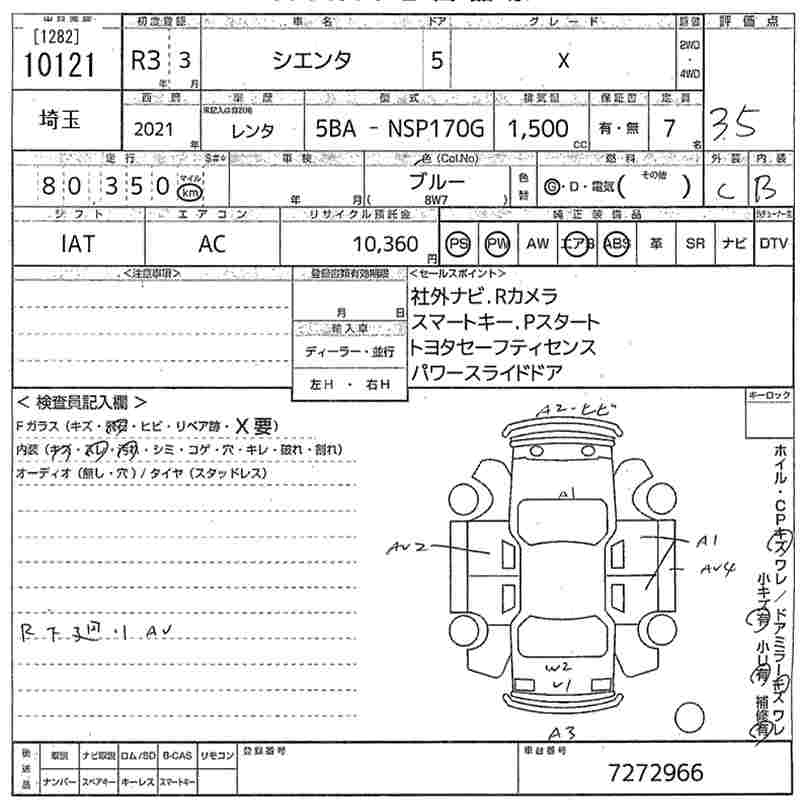 [1282]
10121
埼玉
初度登録
R3 3
年 月
車名
シエンタ
ドア
5
グレード
X
2WD
・
4WD
評価点
3.5
西暦
2021
年
車歴
レンタ
型式
5BA - NSP170G
排気量
1,500
CC
保証書
有・無
定員
7
名
走行
80350
マイル
km
車検
年 月
色(Col.No)
ブルー
( 8W7 )
色替
燃料
G・D・電気( その他 )
外装
C
内装
B
シフト
IAT
エアコン
AC
リサイクル預託金
10,360
円
純正装備品
PS PW AW エアB ABS 革 SR ナビ DTV
<注意事項>
登録書類有効期限
月 日
輸入車
ディーラー・並行
左H ・ 右H
<セールスポイント>
社外ナビ.Rカメラ
スマートキー.Pスタート
トヨタセーフティセンス
パワースライドドア
< 検査員記入欄 >
Fガラス(キズ・飛石・ヒビ・リペア跡・X要)
内装(キズ・汚れ・シミ・コゲ・穴・キレ・破れ・割れ)
オーディオ(無し・穴)/タイヤ(スタッドレス)
R下廻り AV
キーロック
A2-ヒビ
A1
AV2
A1
AV4
W2
V1
A3
ホイル・CPキズワレ/ドアミラーキズワレ
小キズ有 小U有 補修有
後送品
取説 ナビ取説 ロム/SD B-CAS リモコン
ナンバー スペアキー キーレス スマートキー
登録番号
車台番号
7272966